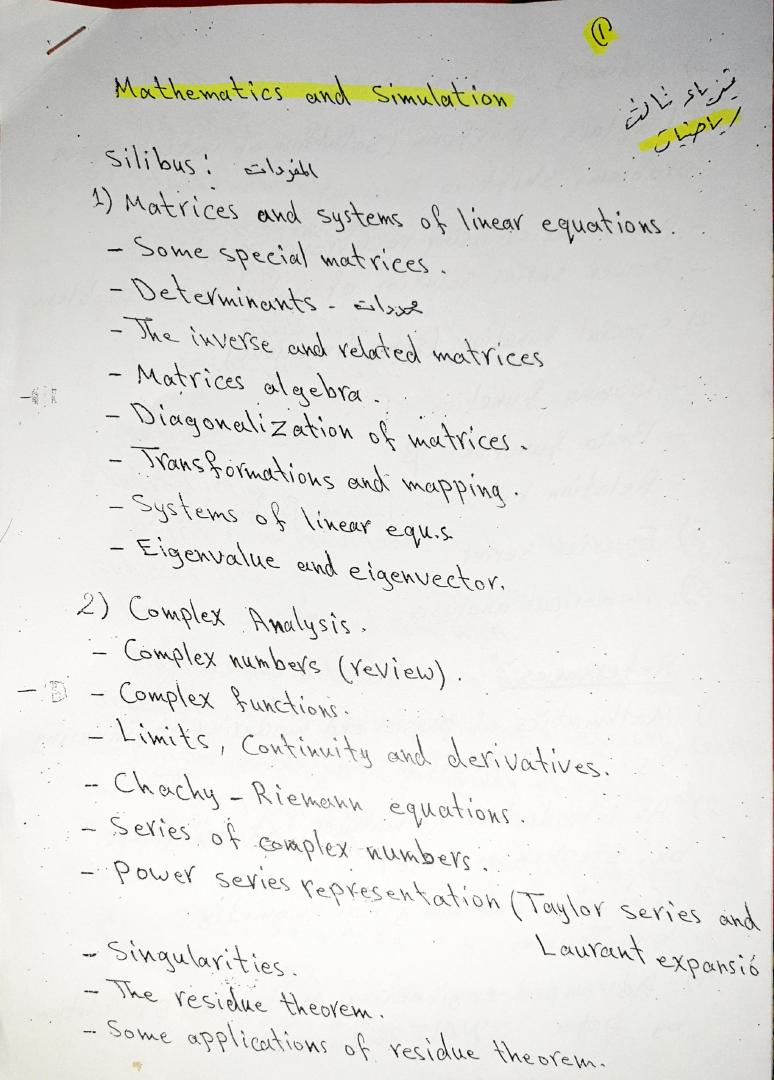 ①
Mathematics and Simulation
فيزياء ثالث
رياضيات
Silibus: المفردات
1) Matrices and systems of linear equations.
- Some special matrices.
- Determinants - محددات
- The inverse and related matrices
- Matrices algebra.
- Diagonalization of matrices.
- Transformations and mapping.
- Systems of linear equ.s
- Eigenvalue and eigenvector.
2) Complex Analysis.
- Complex numbers (review).
- Complex functions.
- Limits, Continuity and derivatives.
- Chachy - Riemann equations.
- Series of complex numbers.
- Power series representation (Taylor series and
Laurant expansió
- Singularities.
- The residue theorem.
- Some applications of residue theorem.